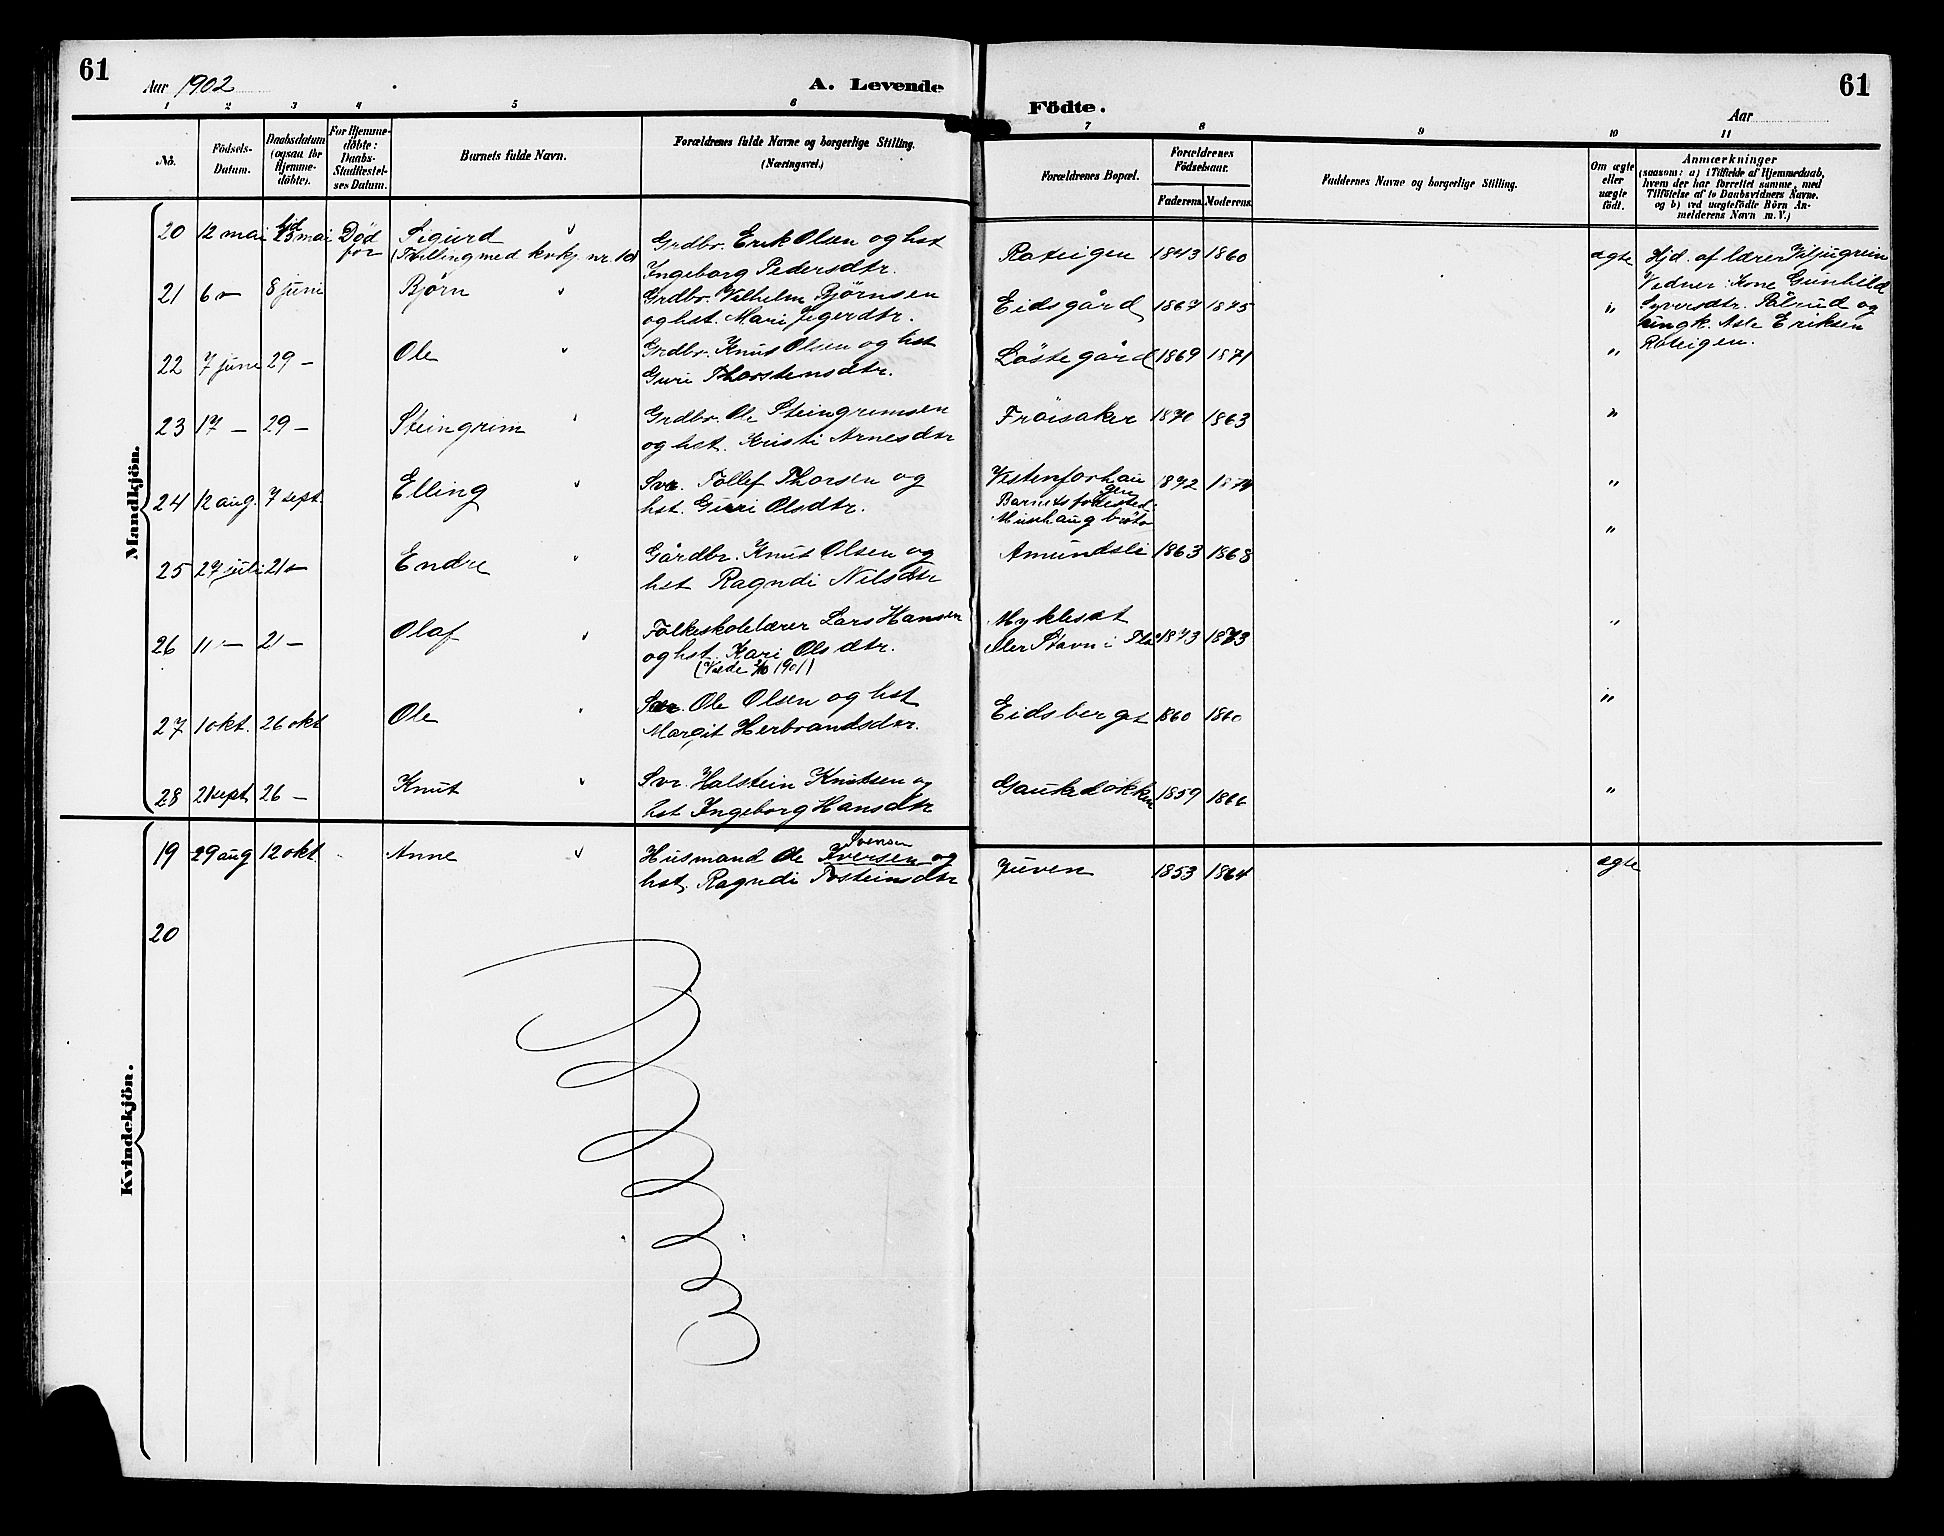 61
Aar 1902
A. Levende
1 2 3 4 5 6
No.
Födsels-Datum.
Daabsdatum (ogsaa for Hjemme-döbte).
For Hjemme-döbte: Daabs-Stadfæstel-ses Datum.
Barnets fulde Navn.
Forældrenes fulde Navne og borgerlige Stilling. (Næringsvei.)
Mandkjön.
20 12 mai hjd 23 mai Död för Sigurd Grdbr. Erik Olsen og hst
(Tvilling med kvkj. nr. 10) Ingeborg Pedersdtr.
21 6 – 8 juni Bjørn Grdbr. Vilhelm Bjørnsen
og hst. Mari
22 7 june 29 – Ole Grdbr. Knut Olsen og hst
Guri Thorstensdtr.
23 17 – 29 – Steingrim Grdbr. Ole Steingrimsen
og hst. Kristi Arnesdtr
24 12 aug. 7 sept Elling Svr. Tollef Thorsen og
hst. Guri Olsdtr.
25 27 juli 21 – Endre Gårdbr. Knut Olsen og
hst Ragndi Nilsdtr
26 11 – 21 – Olaf Folkeskolelærer Lars Hansen
og hst. Kari Olsdtr.
(Viede 1901)
27 1 okt. 26 okt Ole Svr. Ole Olsen og hst
Margit Herbrandsdtr.
28 21 sept 26 – Knut Svr. Halstein Knutsen og
hst Ingeborg Hansdtr
Kvindekjön.
19 29 aug 12 okt Anne Husmand Ole Iversen og
Svensen
hst. Ragndi Tosteinsdtr
20
61
Födte.
Aar
7 8 9 10 11
Forældrenes Bopæl.
Forældrenes Födselsaar.
Faderens. Moderens.
Faddernes Navne og borgerlige Stilling.
Om ægte eller uægte födt.
Anmærkninger
(saasom: a) i Tilfælde af Hjemmedaab,
hvem der har forrettet samme, med
Tilföielse af to Daabsvidners Navne.
og b) ved uægtefödte Börn An-
melderens Navn m. V.)
Roteigen 1843 1860 ægte Hjd. af lærer Viljugrein
Vidner: Kone Gunhild
Eidsgård 1867 1875 " Syversdtr. Pålrud og
ungk. Asle Eriksen
Roteigen.
Löstegård 1869 1871 "
Fröisaker 1870 1863 "
Vestenforhau
gen 1872 "
Barnets fødested:
"
Amundsli 1863 1868
Myklesæt
eller Stavn i Fla 1873 1873 "
Eidsberget 1860 1860 "
Gaukedokken 1859 1866 "
Juven 1853 1864 ægte